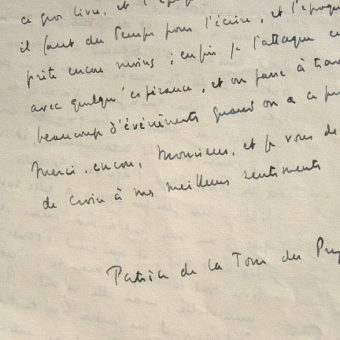 ce gros livre, et l'
il faut du temps pour l'écrire, et l'époque
prête encore moins ; enfin je l'attaque
avec quelqu'espérance, et on passe à trav
beaucoup d'événements quand on a ce p
Merci, encore, Monsieur, et je vous de
de croire à mes meilleurs sentiments
Patrice de la Tour du P